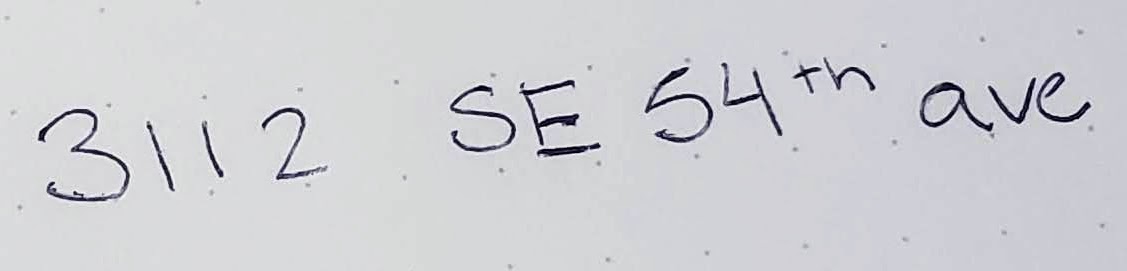 3112 SE 54th ave